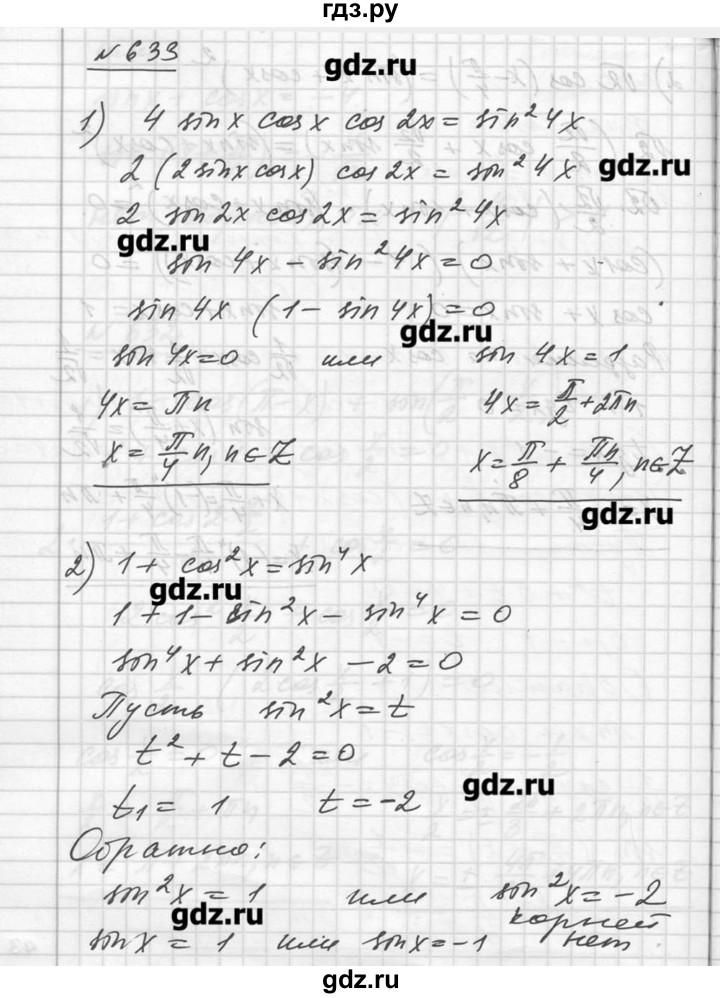 гдз.ру
№633
gdz.ru
1) 4 sin x cos x cos 2x = sin²4x
2 (2 sin x cos x) cos 2x = sin²4x
gdz.ru
2 sin 2x cos 2x = sin²4x
gdz.ru
sin 4x − sin²4x = 0
sin 4x (1 − sin 4x) = 0
gdz.ru
sin 4x = 0 или sin 4x = 1
4x = πn 4x = π/2 + 2πn
x = π/4 n, n∈Z x = π/8 + πn/4, n∈Z
gdz.ru
2) 1 + cos²x = sin⁴x
gdz.ru
1 + 1 − sin²x − sin⁴x = 0
sin⁴x + sin²x − 2 = 0
Пусть sin²x = t
t² + t − 2 = 0
gdz.ru
t₁ = 1 t = −2
Обратно:
sin²x = 1 или sin²x = −2
gdz.ru корней
sin x = 1 или sin x = −1 нет
gdz.ru